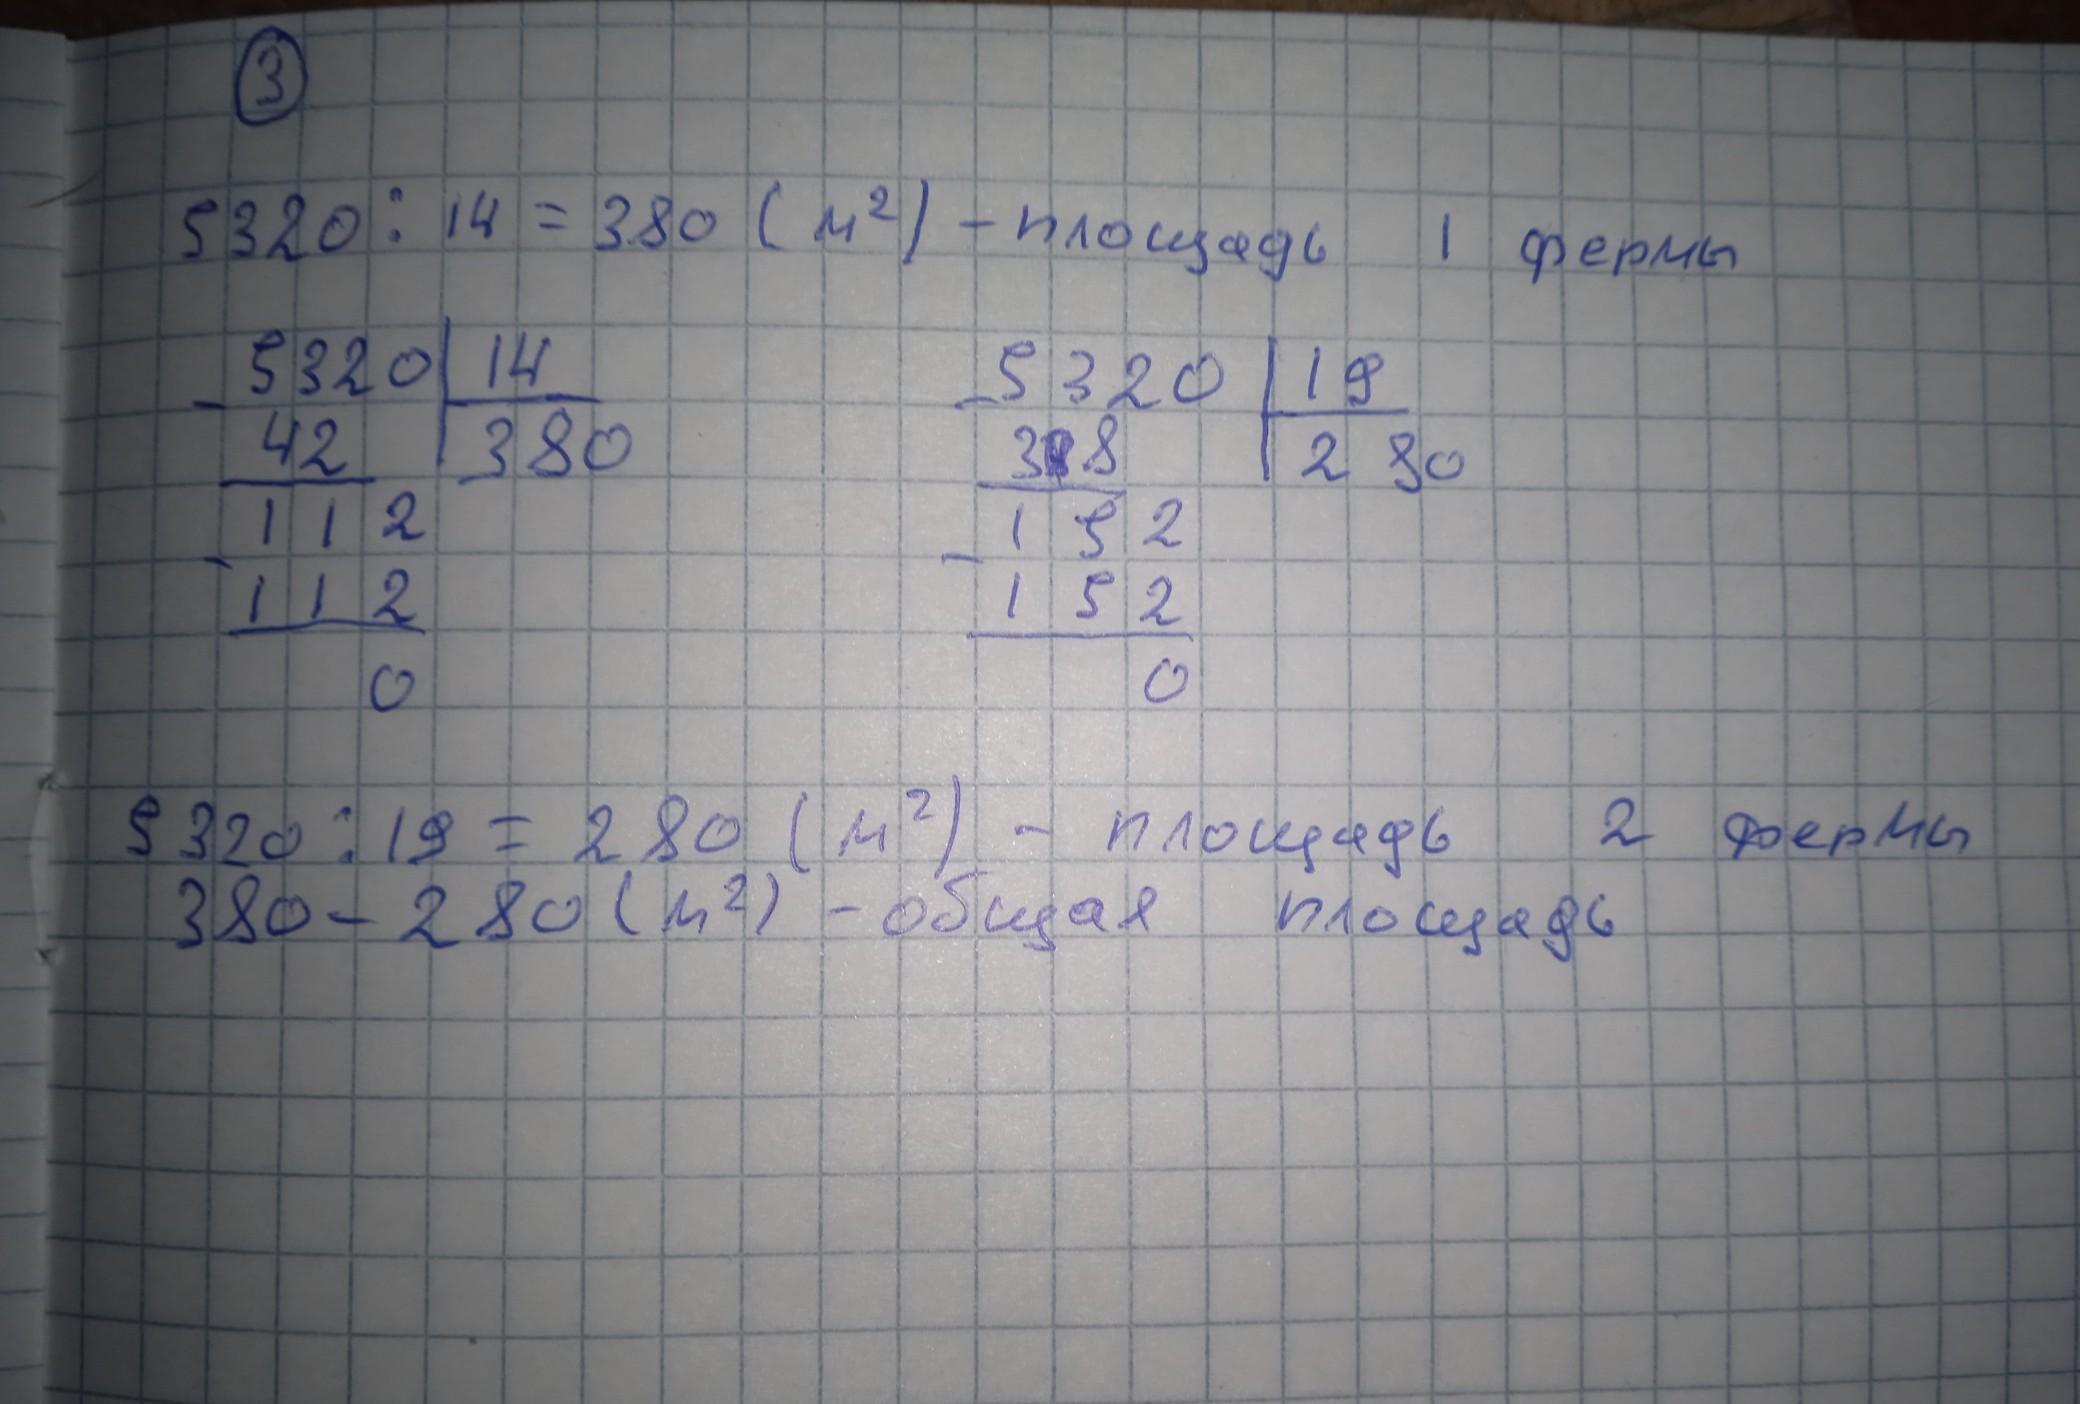 3
5320 : 14 = 380 (м²) - площадь 1 фермы
5320 | 14
- 42 | 380
112
- 112
0
5320 | 19
- 38 | 280
152
- 152
0
5320 : 19 = 280 (м²) - площадь 2 фермы
380 - 280 (м²) - общая площадь